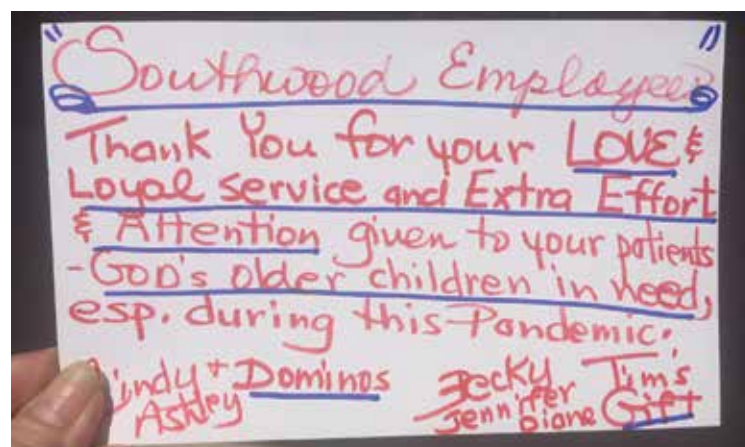 "Southwood Employees"
Thank You for your LOVE &
Loyal service and Extra Effort
& Attention given to your patients
- GOD's older children in need,
esp. during this Pandemic.
Cindy + Dominos Becky Tim's
Ashley Jennifer Diane Gift